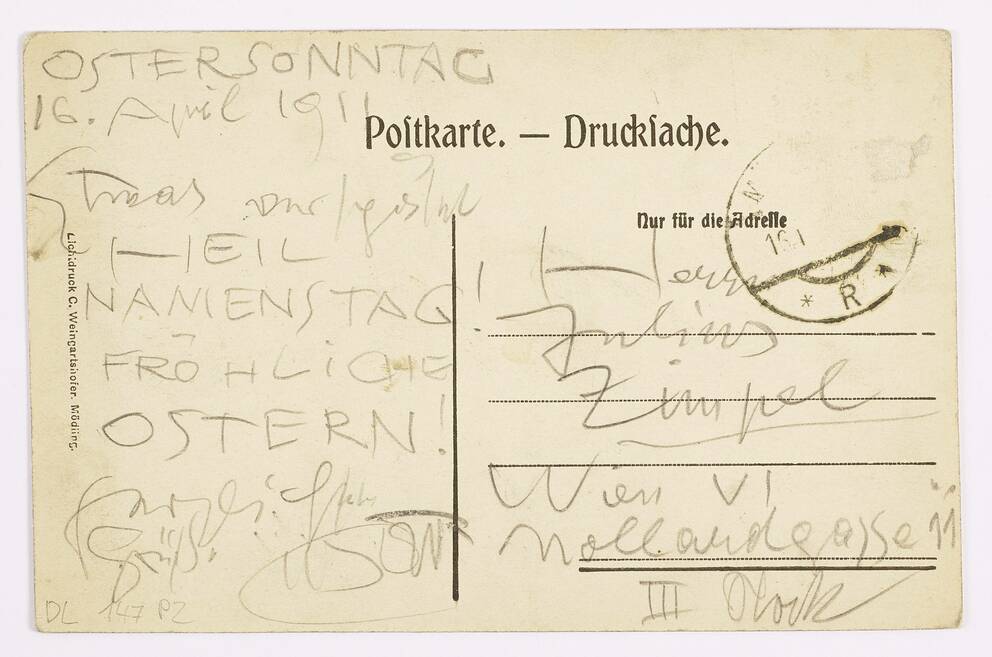 OSTERSONNTAG
16. April 1911
Postkarte. — Drucksache.
Etwas verspätet
HEIL
NAMENSTAG!
FRÖHLICHE
OSTERN!
herzlichste
Grüße
Nur für die Adresse
Herrn
Julius
Zimpel
Wien VI
Mollardgasse 11
III Stock
16 I
* R *
Lichtdruck C. Weingartshofer. Mödling.
DL 147 PZ